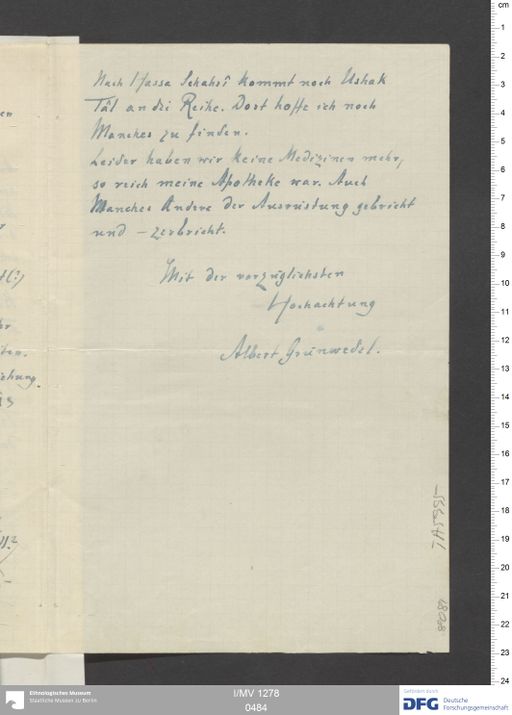 Nach Hassa Schahri kommt noch Ushak
Tâl an die Reihe. Dort hoffe ich noch
Manches zu finden.
Leider haben wir keine Medizinen mehr,
so reich meine Apotheke war. Auch
Manches Andere der Ausrüstung gebricht
und – zerbricht.
Mit der vorzüglichsten
Hochachtung
Albert Grünwedel.
en
(?)
ten.
iehung
cm
1
2
3
4
5
6
7
8
9
10
11
12
13
14
15
16
17
18
19
20
21
22
23
24
Ethnologisches Museum
Staatliche Museen zu Berlin
I/MV 1278
0484
Gefördert durch
DFG
Deutsche
Forschungsgemeinschaft